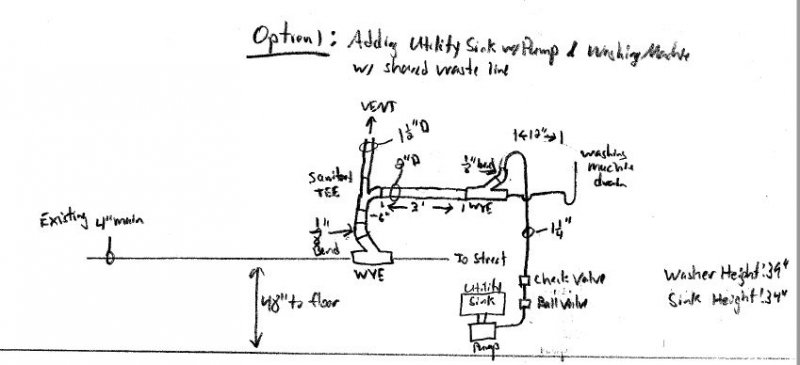 Option 1: Adding Utility Sink w/ Pump & Washing Machine
w/ shared waste line
VENT
1 1/2" D
2" D
Sanitary
TEE
1/8" bend
1<12"→1
washing
machine
drain
3'
WYE
~6"
1/8"
Bend
Existing 4" main
WYE
To Street
1 1/4"
48" to floor
Utility
Sink
Check Valve
Ball Valve
Pump
Washer Height: 39"
Sink Height: 34"